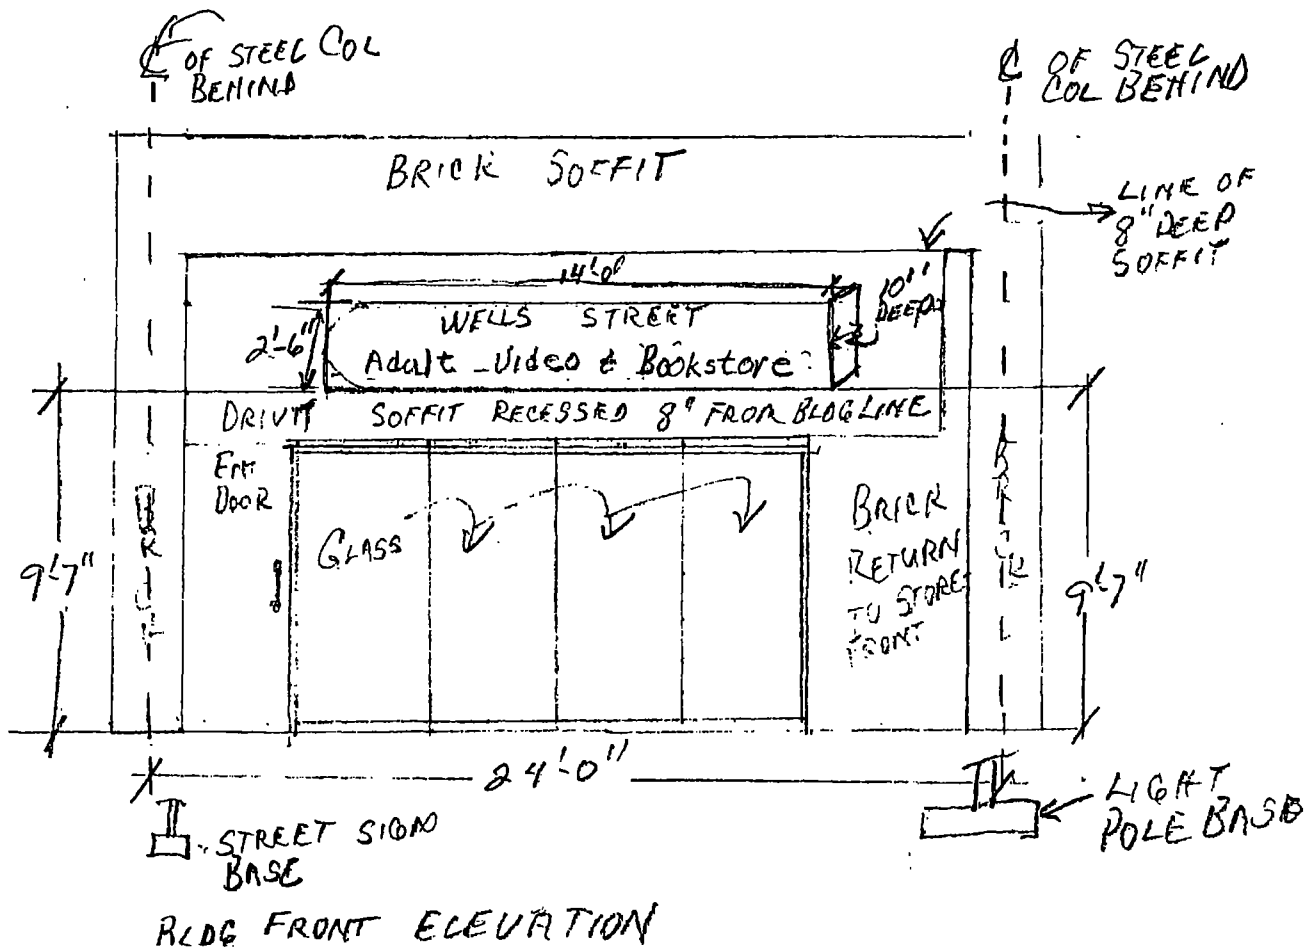 ℄ OF STEEL COL
BEHIND
℄ OF STEEL
COL BEHIND
BRICK SOFFIT
LINE OF
8" DEEP
SOFFIT
14'-0"
10"
DEEP
2'-6"
WELLS STREET
Adult Video & Bookstore
DRIVIT SOFFIT RECESSED 8" FROM BLDG LINE
ENT
DOOR
GLASS
BRICK
RETURN
TO STORE
FRONT
BRICK
BRICK
9'-7"
9'-7"
24'-0"
STREET SIGN
BASE
LIGHT
POLE BASE
BLDG FRONT ELEVATION